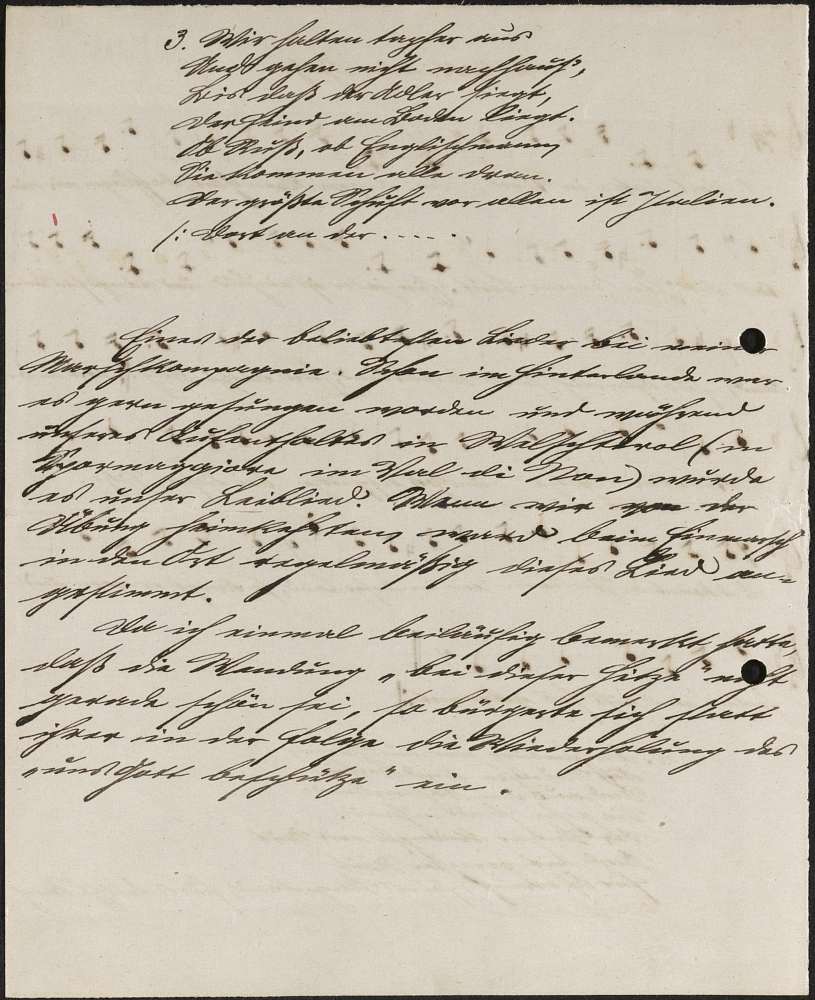 3. Wir halten tapfer aus
Und gehen nicht nachhaus,
Bis daß der Adler siegt,
Der Feind am Boden liegt.
Ob Ruß, ob Englischmann,
Sie kommen alle dran.
Der größte Schuft vor allen ist Italien.
/: Dort an der . . . . .
Eines der beliebtesten Lieder bei meiner
Marschkompagnie. Schon im Hinterlande war
es gern gesungen worden und während
unseres Aufenthaltes in Welschtirol (in
Spormaggiore im Val di Non) wurde
es unser Leiblied. Wenn wir von der
Übung heimkehrten, ward beim Einmarsch
in den Ort regelmäßig dieses Lied an=
gestimmt.
Da ich einmal beiläufig bemerkt hatte,
daß die Wendung „bei dieser Hitze" nicht
gerade schön sei, so bürgerte sich statt
ihrer in der Folge die Wiederholung des
„uns Gott beschütze" ein.